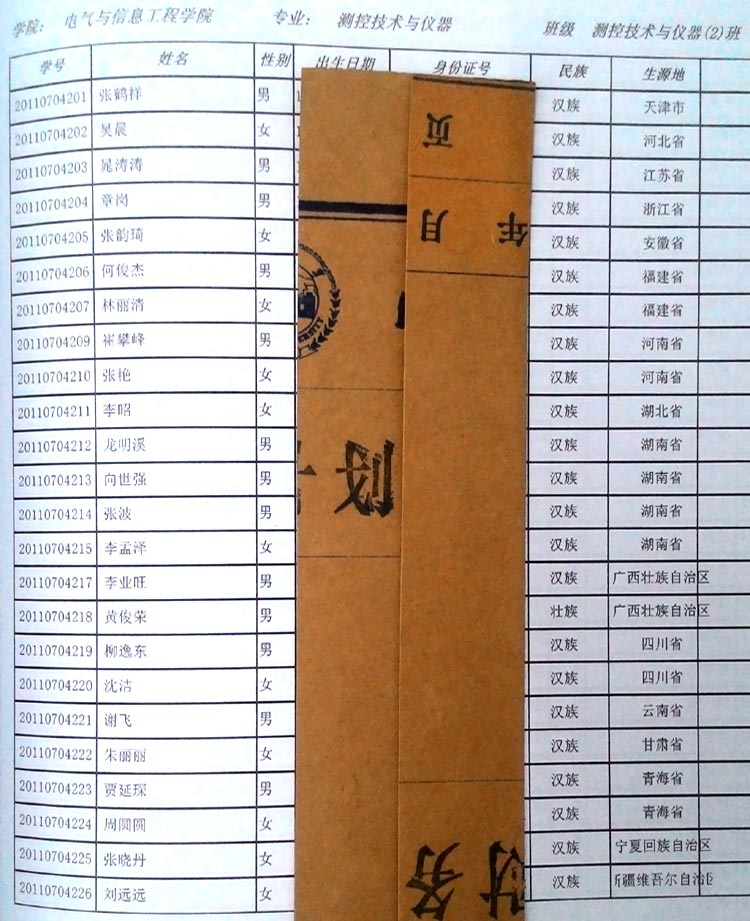 学院: 电气与信息工程学院 专业: 测控技术与仪器 班级 测控技术与仪器(2)班
学号 姓名 性别 出生日期 身份证号 民族 生源地
20110704201 张鹤祥 男 汉族 天津市
20110704202 吴晨 女 汉族 河北省
20110704203 晁涛涛 男 汉族 江苏省
20110704204 章岗 男 汉族 浙江省
20110704205 张韵琦 女 汉族 安徽省
20110704206 何俊杰 男 汉族 福建省
20110704207 林丽清 女 汉族 福建省
20110704209 崔攀峰 男 汉族 河南省
20110704210 张艳 女 汉族 河南省
20110704211 李昭 女 汉族 湖北省
20110704212 龙明溪 男 汉族 湖南省
20110704213 向世强 男 汉族 湖南省
20110704214 张波 男 汉族 湖南省
20110704215 李孟泽 女 汉族 湖南省
20110704217 李业旺 男 汉族 广西壮族自治区
20110704218 黄俊荣 男 壮族 广西壮族自治区
20110704219 柳逸东 男 汉族 四川省
20110704220 沈洁 女 汉族 四川省
20110704221 谢飞 男 汉族 云南省
20110704222 朱丽丽 女 汉族 甘肃省
20110704223 贾延琛 男 汉族 青海省
20110704224 周圆圆 女 汉族 青海省
20110704225 张晓丹 女 汉族 宁夏回族自治区
20110704226 刘远远 女 汉族 新疆维吾尔自治区
页
年 月
财务